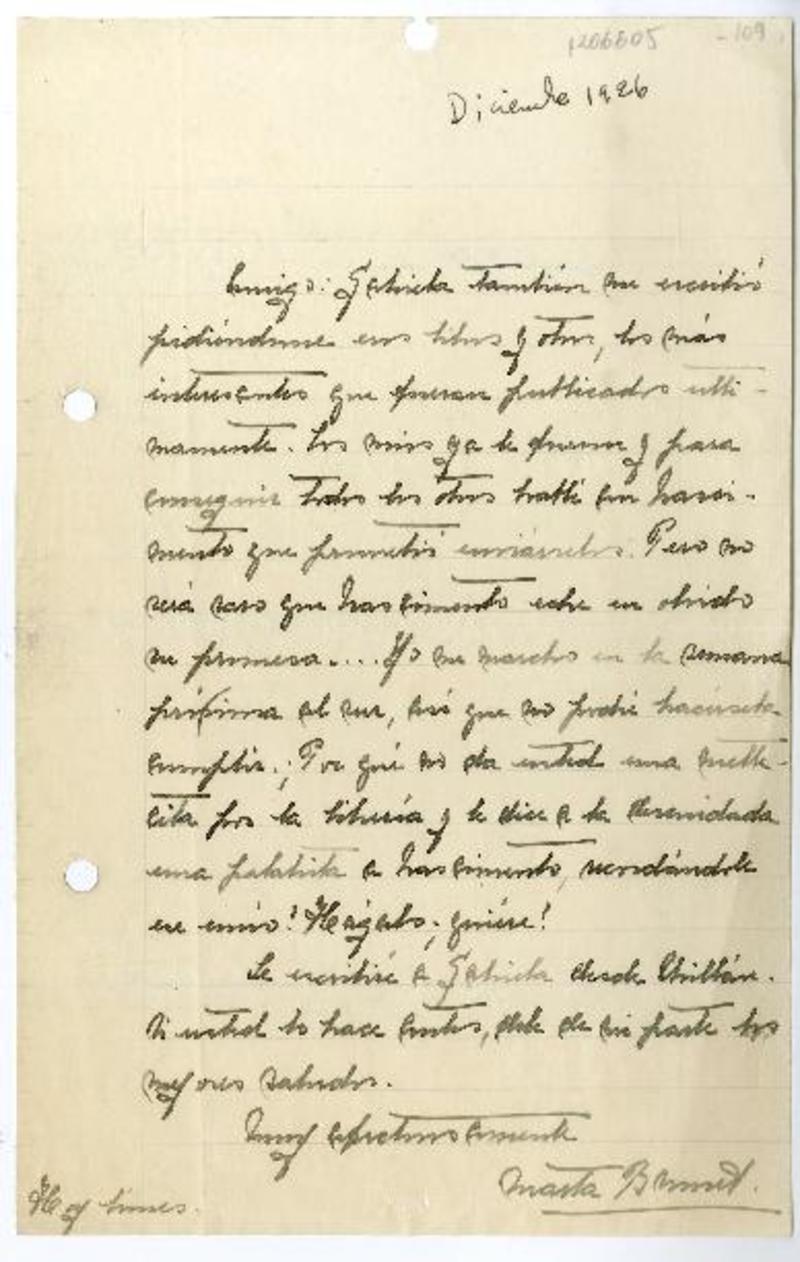 1206605 -109
Diciembre 1926
Amigo: Gabriela también me escribió
pidiéndome esos libros y otros, los más
interesantes que fueran publicados ulti-
mamente. Los mios ya le fueron y para
conseguir todos los otros hablé con Nasci-
mento que prometió enviárselos. Pero no
será raro que Nascimento eche en olvido
su promesa.... Yo me marcho en la semana
próxima al sur, así que no podré hacérsela
cumplir. ¿Por qué no da usted una vuelte-
cita por la librería y le dice a la descuidada
una palabrita a Nascimento, recordándole
ese envío? Hágalo ¿quiére?
Le escribiré a Gabriela desde Chillán.
Si usted lo hace antes, dele de mi parte los
mejores saludos.
Muy afectuosamente
Marta Brunet.
Hoy lunes.